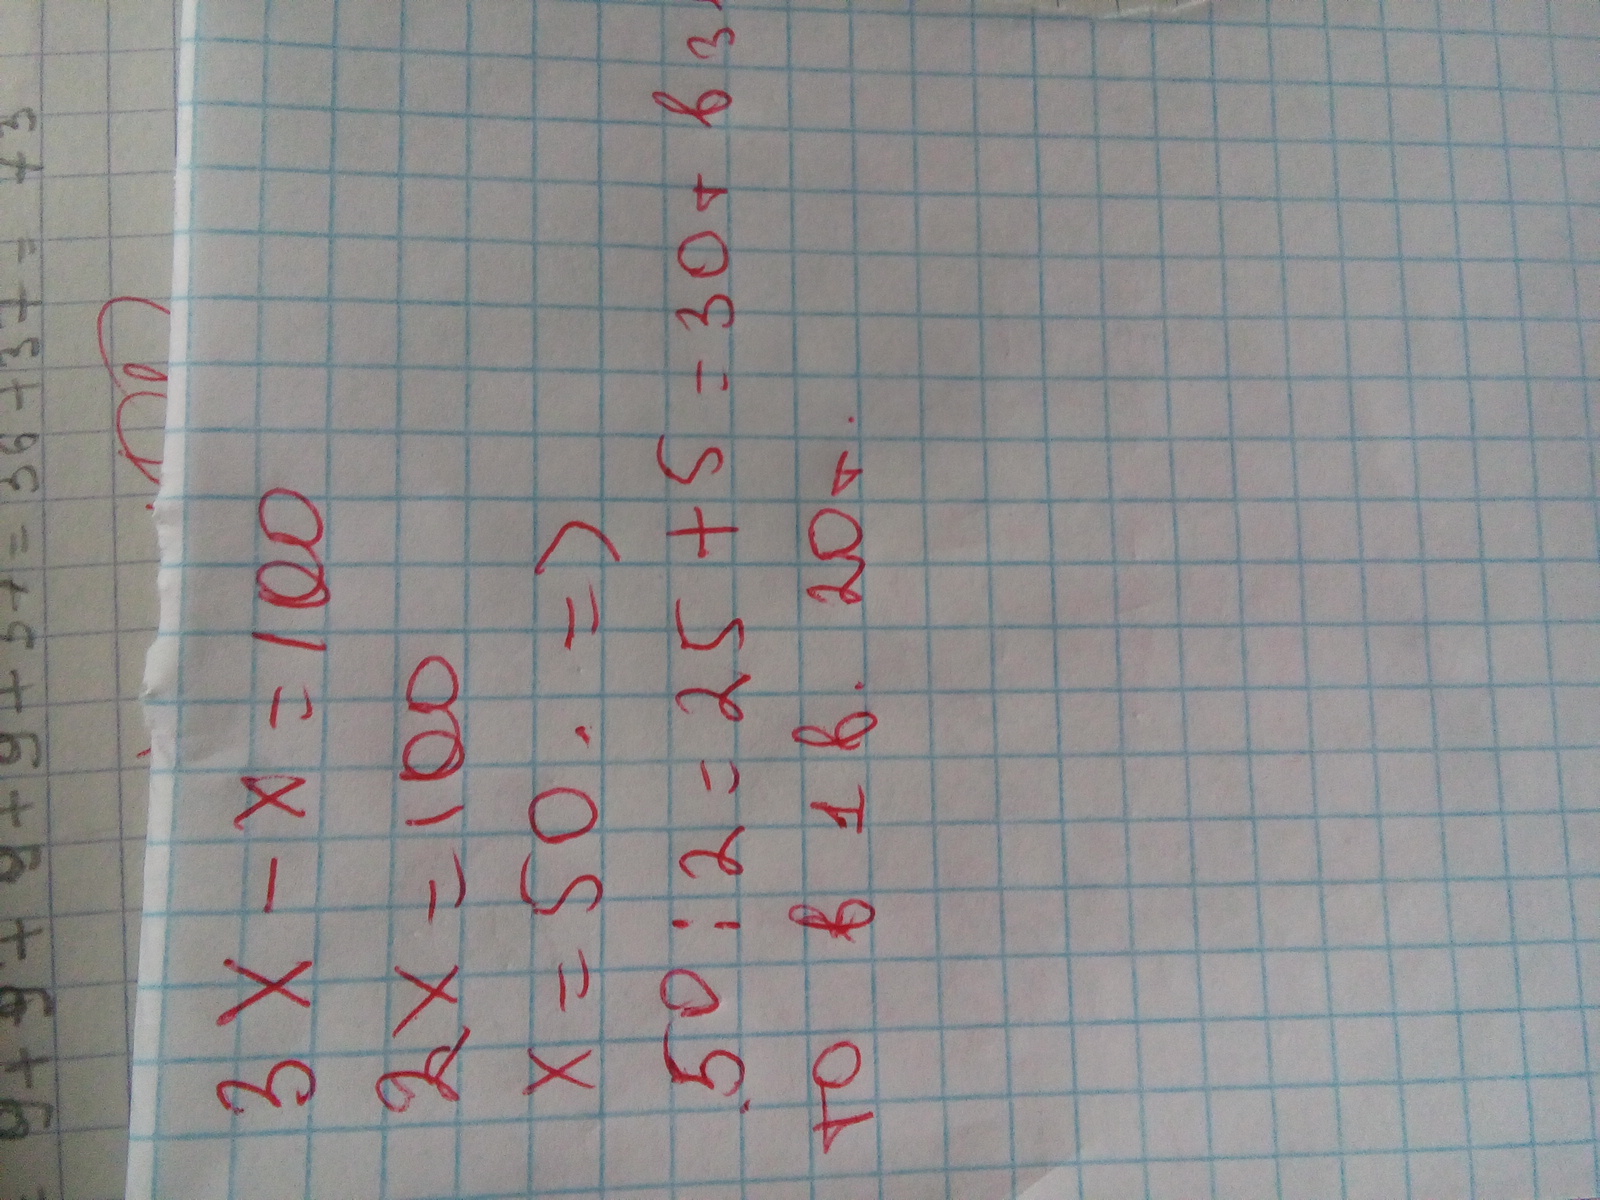 9 + 9 + 9 + 9 + 5 + 1 = 36 + 37 = 73
3x - x = 100
2x = 100
x = 50. =>
50 : 2 = 25 + 5 = 30т в 3
то в 1 в. 20 т.